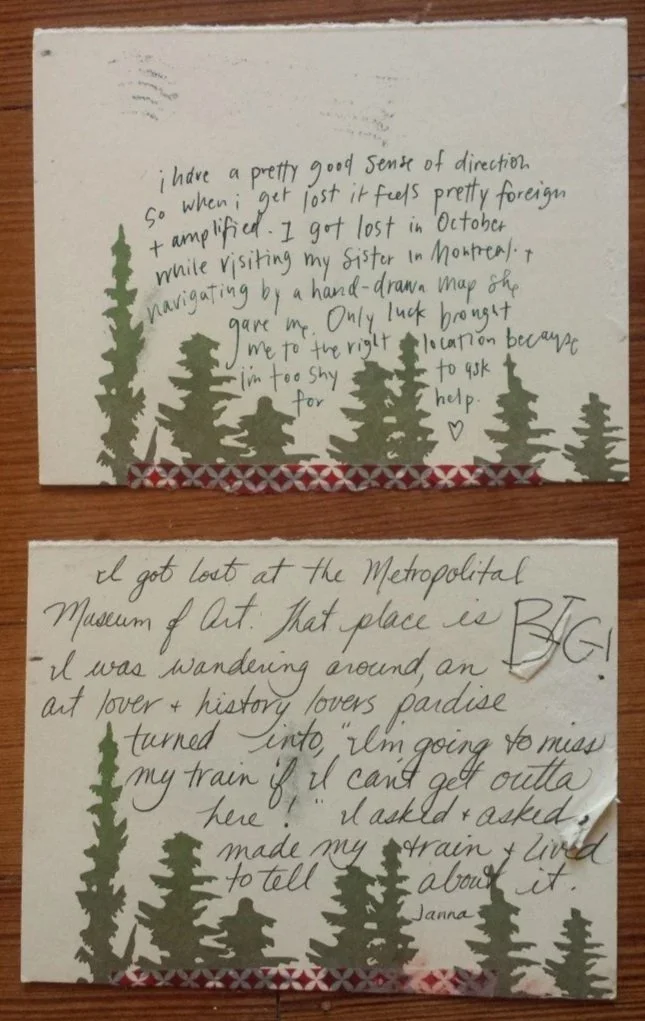 i have a pretty good sense of direction
so when i get lost it feels pretty foreign
+ amplified. I got lost in October
while visiting my sister in Montreal. +
navigating by a hand-drawn map she
gave me. Only luck brought
me to the right location because
i'm too shy to ask
for help.
♡
I got lost at the Metropolital
Museum of Art. That place is BIG!
I was wandering around, an
art lover + history lovers pardise
turned into, "I'm going to miss
my train if I can't get outta
here!" I asked + asked,
made my train + lived
to tell about it.
Janna